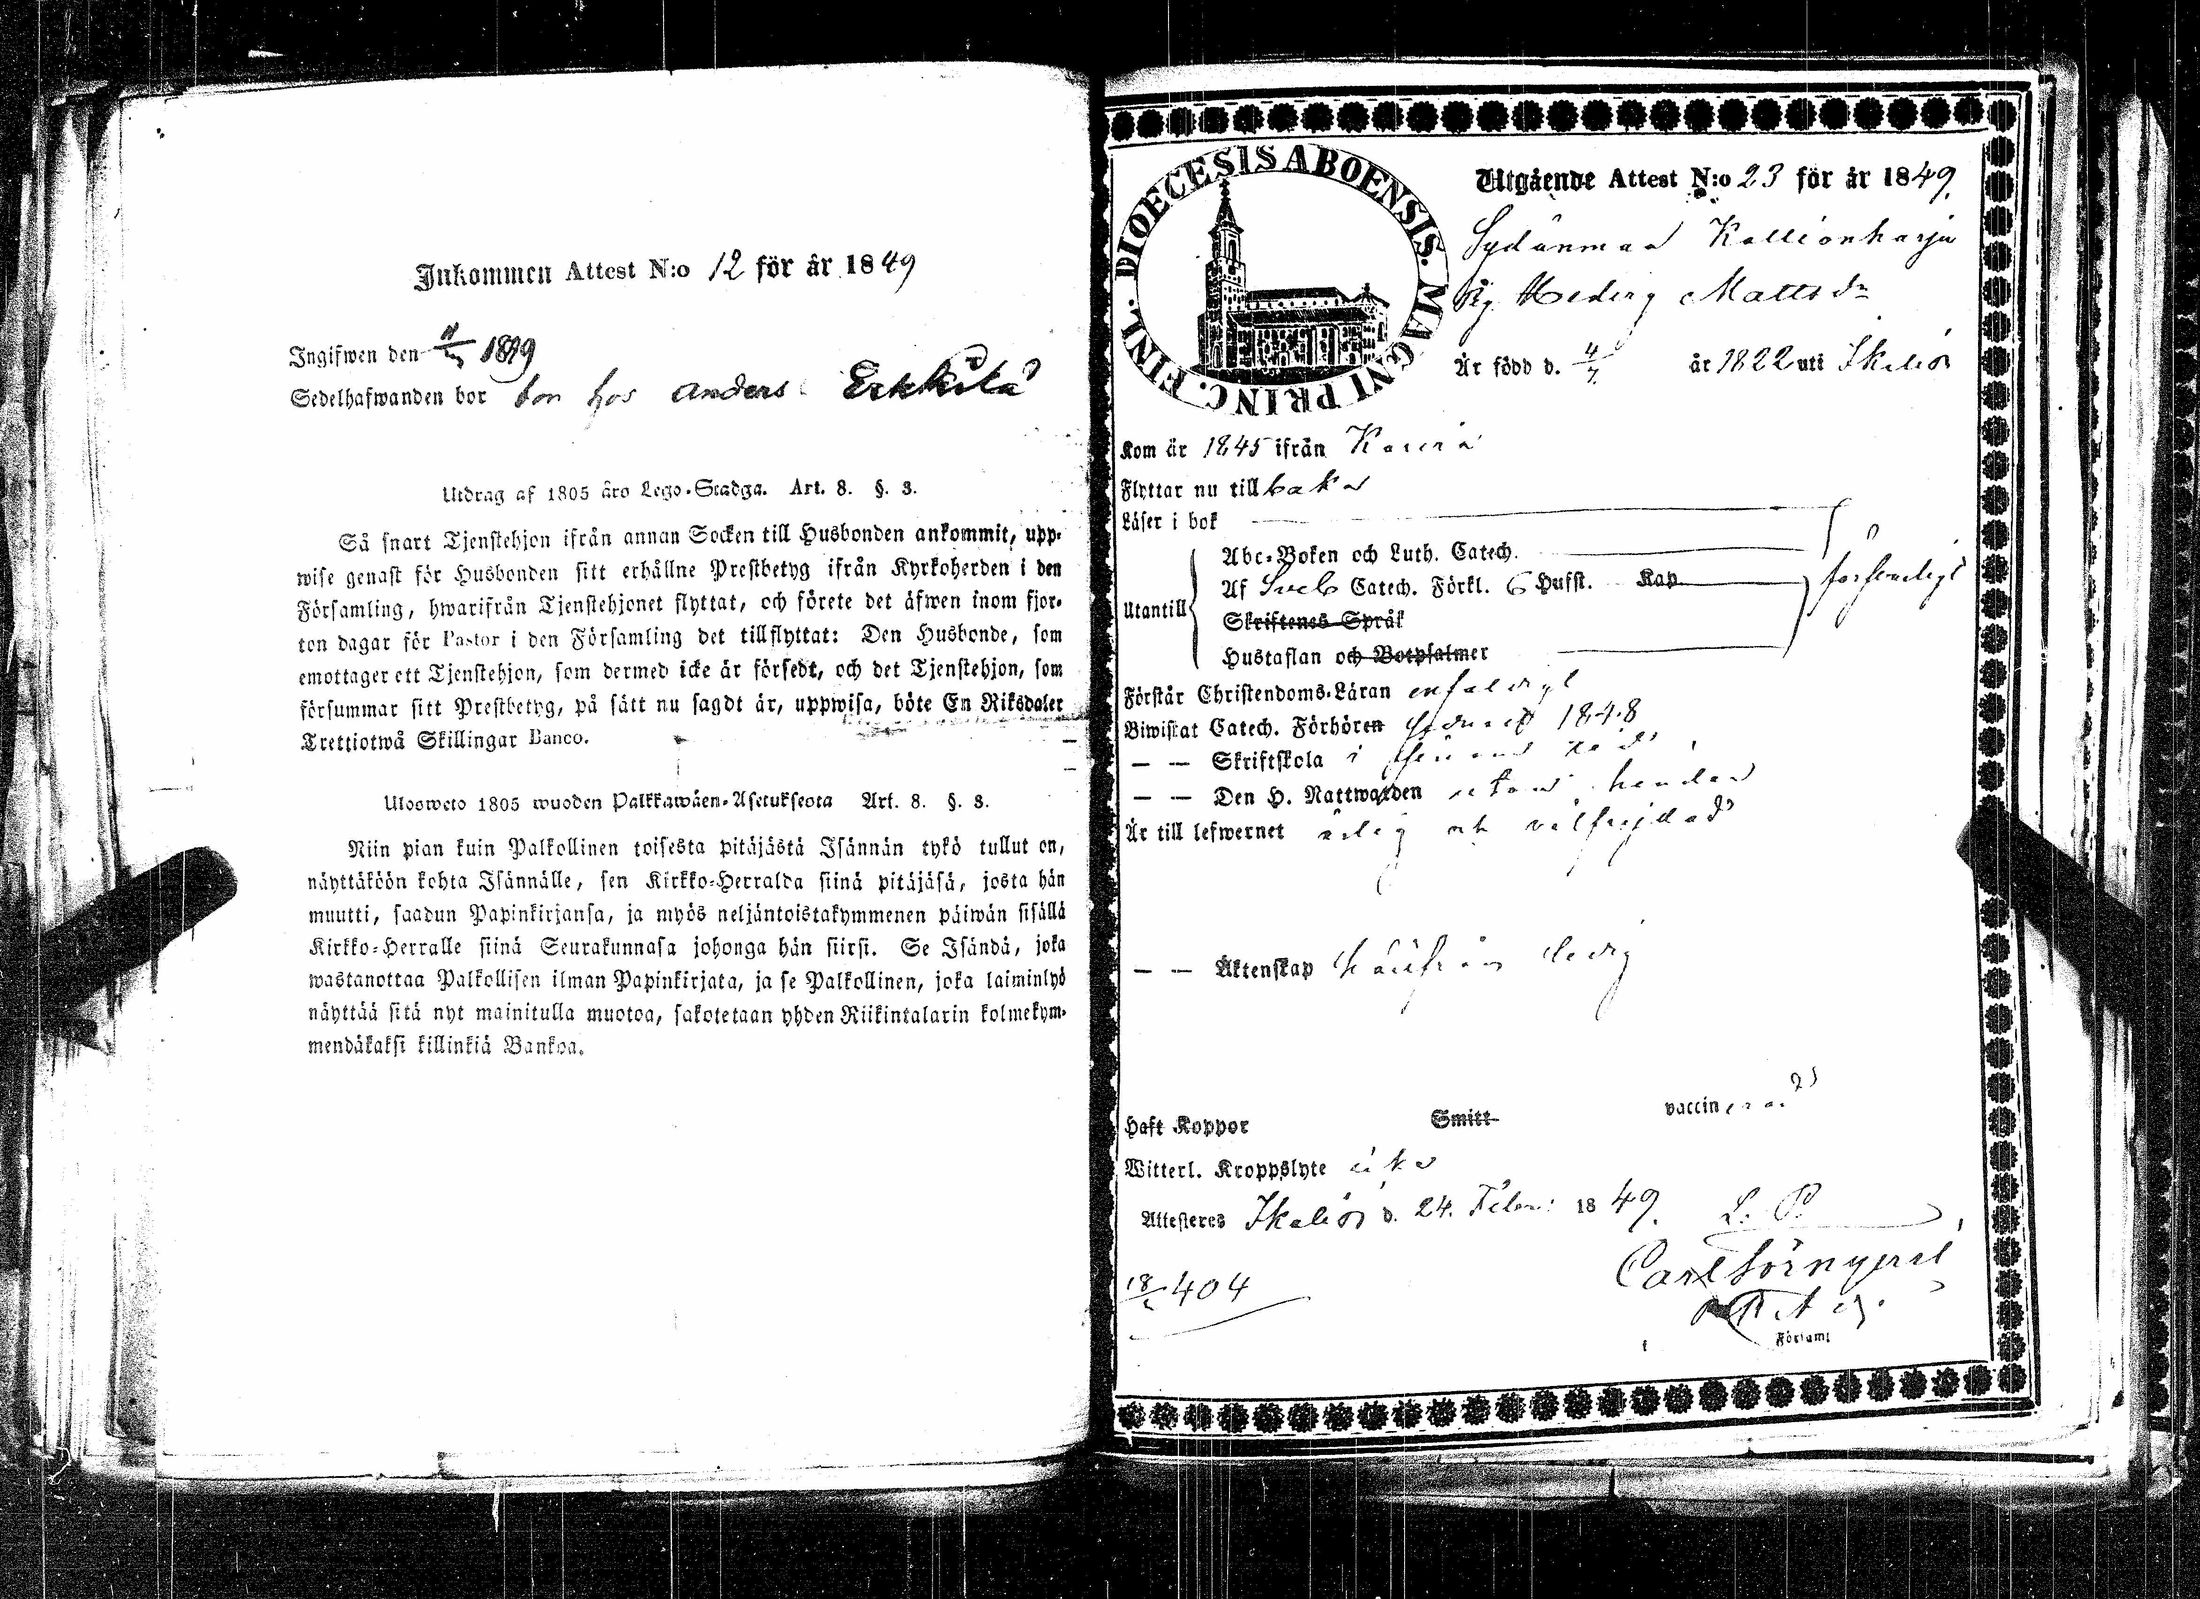 Inkommen Attest N:o 12 för år 1849
Ingifwen den 1849
Sedelhafwanden bor hos Anders Erkkilä
Utdrag af 1805 års Lego-Stadga. Art. 8. §. 3.
Så snart Tjenstehjon ifrån annan Socken till Husbonden ankommit, upp-
wise genast för Husbonden sitt erhållne Prestbetyg ifrån Kyrkoherden i den
Församling, hwarifrån Tjenstehjonet flyttat, och förete det äfwen inom fjor-
ton dagar för Pastor i den Församling det tillflyttat: Den Husbonde, som
emottager ett Tjenstehjon, som dermed icke är försedt, och det Tjenstehjon, som
försummar sitt Prestbetyg, på sätt nu sagdt är, uppwisa, böte En Riksdaler
Trettiotwå Skillingar Banco.
Ulosweto 1805 wuoden Palkkawäen-Asetuksesta Art. 8. §. 3.
Niin pian kuin Palkollinen toisesta pitäjästä Isännän tykö tullut on,
näyttäköön kohta Isännälle, sen Kirkko-Herralda siinä pitäjäsä, josta hän
muutti, saadun Papinkirjansa, ja myös neljäntoistakymmenen päiwän sisällä
Kirkko-Herralle siinä Seurakunnasa johonga hän siirsi. Se Isändä, joka
wastanottaa Palkollisen ilman Papinkirjata, ja se Palkollinen, joka laiminlyö
näyttää sitä nyt mainitulla muotoa, sakotetaan yhden Riikintalarin kolmekym-
mendäkaksi killinkiä Bankoa.
DIOECESIS ABOENSIS. MAGNI PRINC. FINL.
Utgående Attest N:o 23 för år 1849.
Sydänmaa Kallionharju
Pig. Hedvig Mattsdr
Är född d. 4/7. år 1822 uti Ikalis
Kom år 1845 ifrån Kauria
Flyttar nu tillbaka
Läser i bok
Utantill
Abc-Boken och Luth. Catech.
Af Sveb Catech. Förkl. 6 Hufst. Kap.
försvarligt
Skriftenes Språk
Hustaflan och Botpsalmer
Förstår Christendoms-Läran enfaldigt
Biwistat Catech. Förhören 1848
— — Skriftskola i
— — Den H. Nattwarden utan hinder
Är till lefwernet ärlig och välfrejdad
— — Äktenskap härifrån ledig
Haft Koppor Smitt vaccinerad
Witterl. Kroppslyte icke
Attesteras Ikalis d. 24. Febr: 1849. L. P.
Carl Törnqvist
18/2 404
Församl